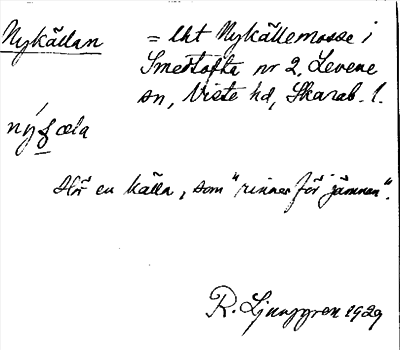 Nykällan = lht Nykällemosse i
Smedtofta nr 2, Levene
sn, Viste hd, Skarab. l.
nýȝæla
Här en källa, som "rinner för jämnan".
R. Ljunggren 1929